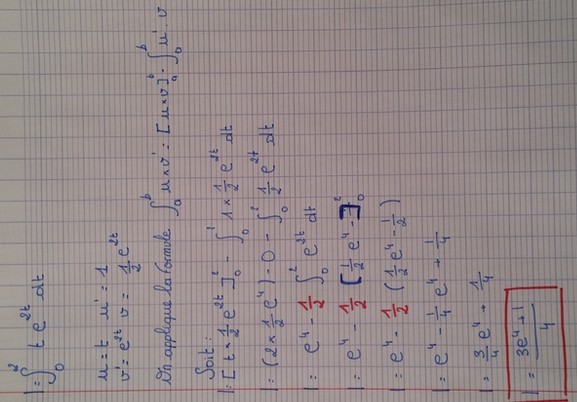 I = ∫₀² t e^{2t} dt
u = t u' = 1
v' = e^{2t} v = 1/2 e^{2t}
On applique la formule ∫₀^b u × v' = [u × v]ₐ^b - ∫₀^b u' · v
Soit :
I = [t × 1/2 e^{2t}]₀² - ∫₀² 1 × 1/2 e^{2t} dt
I = (2 × 1/2 e⁴) - 0 - ∫₀² 1/2 e^{2t} dt
I = e⁴ - 1/2 ∫₀² e^{2t} dt
I = e⁴ - 1/2 [1/2 e⁴ - ]₀²
I = e⁴ - 1/2 (1/2 e⁴ - 1/2)
I = e⁴ - 1/4 e⁴ + 1/4
I = 3/4 e⁴ + 1/4
I = (3e⁴ + 1)/4